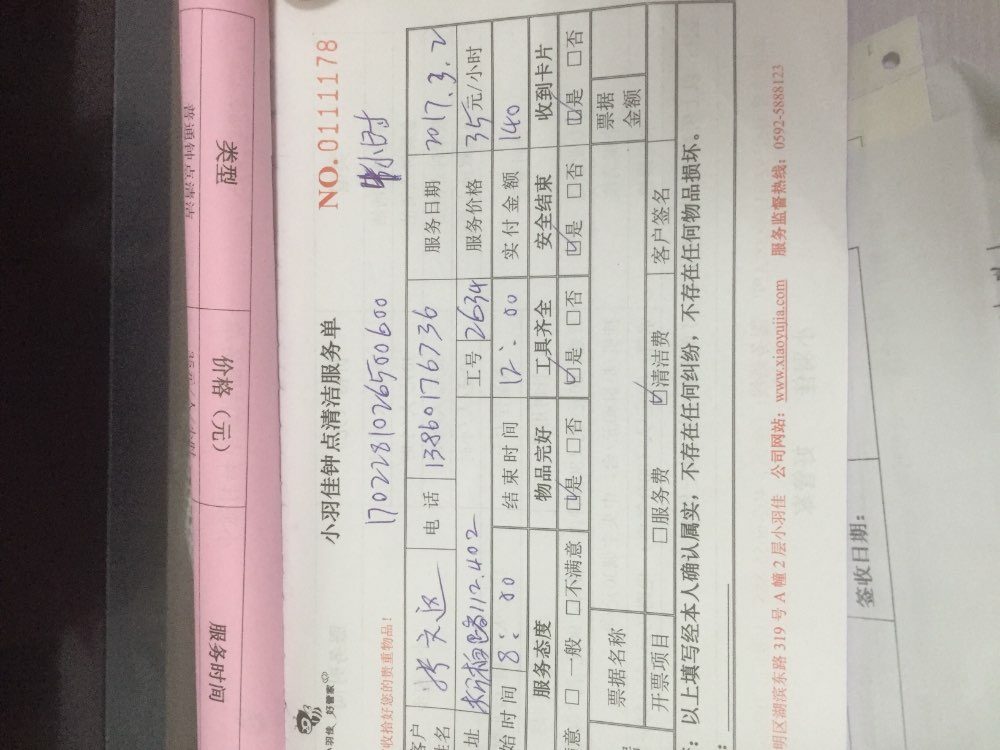 类型
价格（元）
服务时间
普通钟点清洁
小羽佳钟点清洁服务单
NO.01111178
好管家
170228102650​0600
小时
收拾好您的贵重物品！
客户
姓名
电话 13860176736 服务日期 2017.3.2
址 112.402 工号 2634 服务价格 35元/小时
始时间 8:00 结束时间 12:00 实付金额 140
服务态度 物品完好 工具齐全 安全结束 收到卡片
意 □ 一般 □不满意 ☑是 □否 ☑是 □否 ☑是 □否 ☑是 □否
票据名称 票据
金额
开票项目 □服务费 ☑清洁费 客户签名
：以上填写经本人确认属实，不存在任何纠纷，不存在任何物品损坏。
明区湖滨东路 319 号 A 幢 2 层小羽佳 公司网站：www.xiaoyujia.com 服务监督热线：0592-5888123
签收日期：